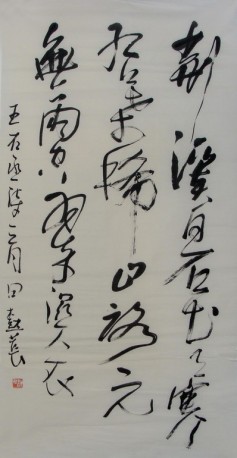 荆溪白石出天寒
红葉稀山路元
無雨空翠濕人衣
王右丞诗三月田